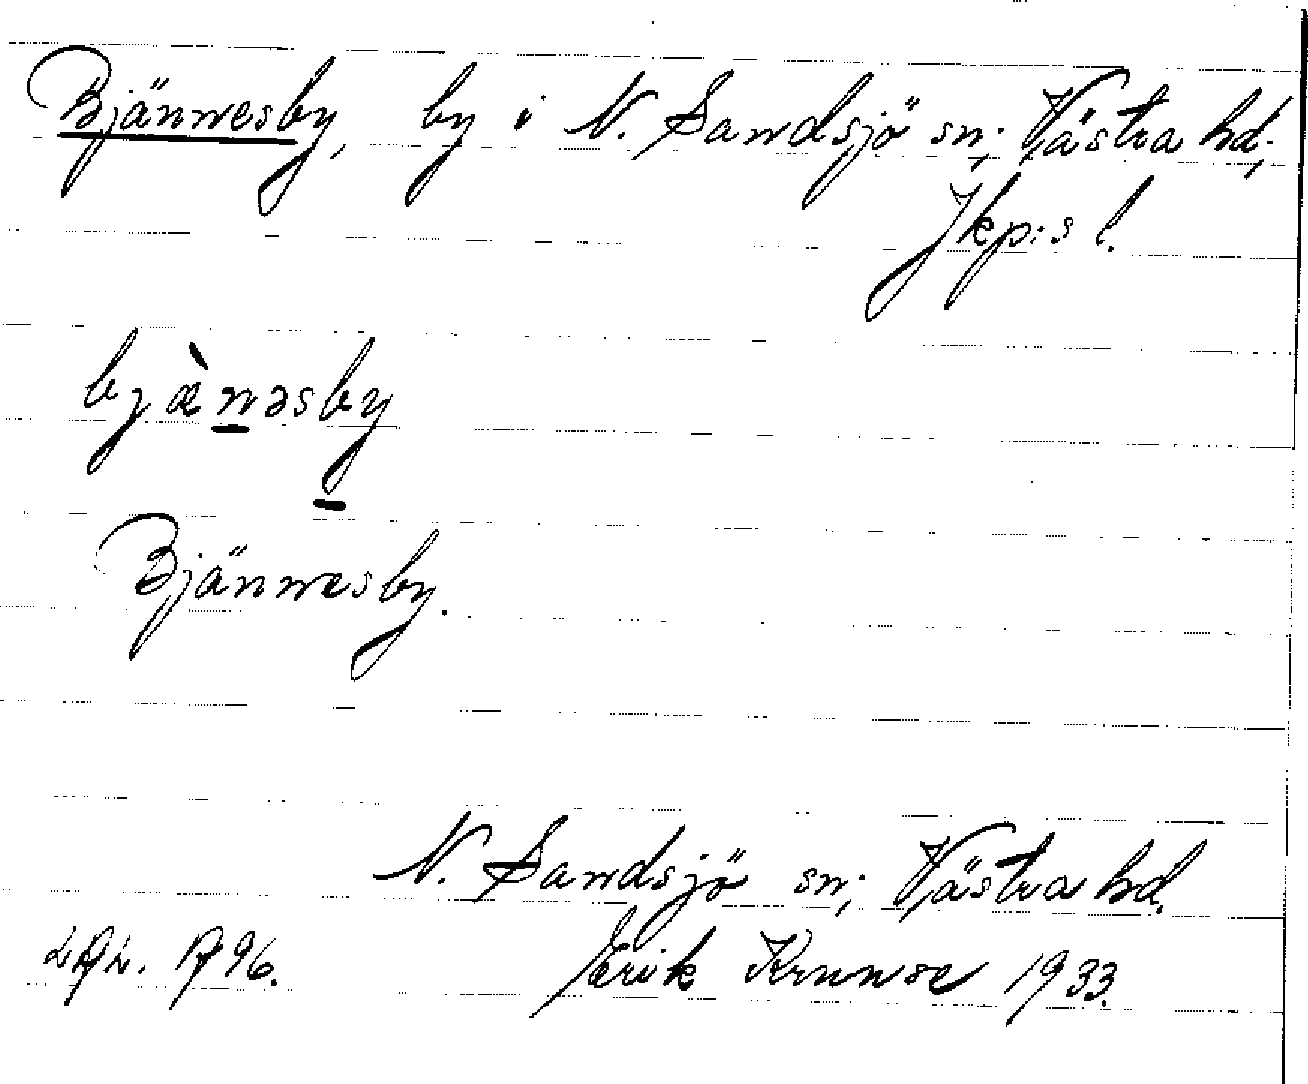 Bjännesby, by i N. Sandsjö sn; Västra hd;
Jkp:s l.
bjæ̀nəsby
Bjännesby.
N. Sandsjö sn; Västra hd.
1996.
Erik Krunse 1933.